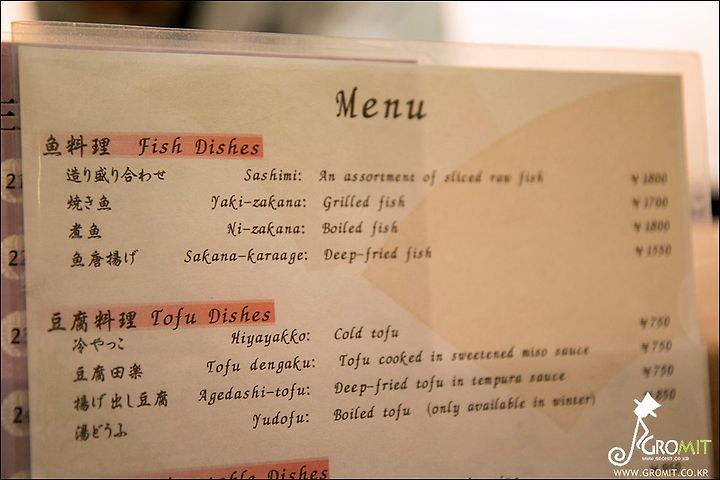 Menu
魚料理 Fish Dishes
造り盛り合わせ Sashimi: An assortment of sliced raw fish ￥1800
焼き魚 Yaki-zakana: Grilled fish ￥1700
煮魚 Ni-zakana: Boiled fish ￥1800
魚唐揚げ Sakana-karaage: Deep-fried fish ￥1550
豆腐料理 Tofu Dishes
冷やっこ Hiyayakko: Cold tofu ￥750
豆腐田楽 Tofu dengaku: Tofu cooked in sweetened miso sauce ￥750
揚げ出し豆腐 Agedashi-tofu: Deep-fried tofu in tempura sauce ￥750
湯どうふ Yudofu: Boiled tofu (only available in winter) ￥850
Dishes
GROMIT
WWW.GROMIT.CO.KR
WWW.GROMIT.CO.KR